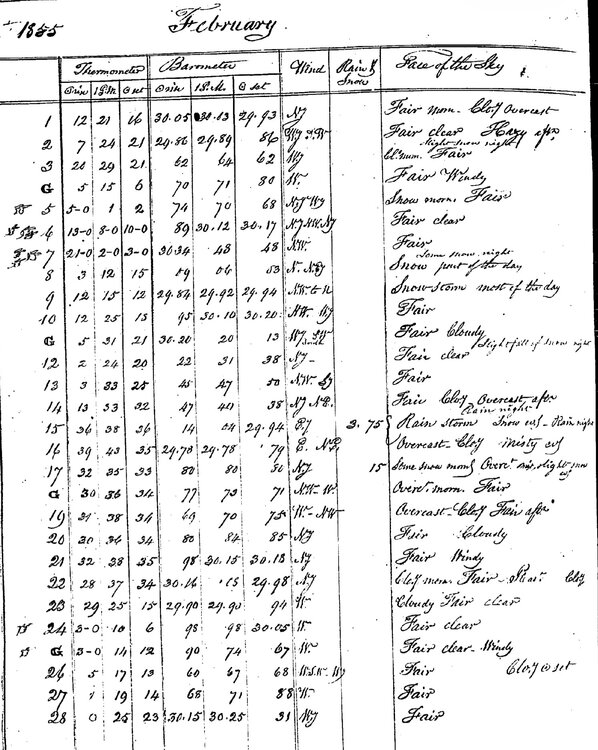 1855 February
Thermometer Barometer Wind Rain & Snow Face of the Sky
⊙ rise 1 P.M. ⊙ set ⊙ rise 1 P.M. ⊙ set
1 12 21 16 30.05 30.13 29.93 Fair morn. Cloy Overcast
2 7 24 21 29.86 29.89 86 Fair clear Hazy aftn.
Slight snow night
3 20 29 21 62 64 62 Fair
G 5 15 6 70 71 80 W. Fair Windy
5 5-0 1 2 74 70 68 Snow morn. Fair
6 13-0 8-0 10-0 89 30.12 30.17 Fair clear
7 21-0 2-0 3-0 30.34 48 48 N.W. Fair
Some snow night
8 3 12 15 53 Snow part of the day
9 12 15 12 29.84 29.92 29.94 N.W. to N Snow storm most of the day
10 12 25 13 95 30.10 30.20 Fair
G 5 31 21 30.20 20 13 Fair Cloudy
Slight fall of snow night
12 2 24 20 22 31 38 Fair clear
13 3 33 25 45 47 50 Fair
14 13 33 32 47 40 38 Fair Cloy Overcast aftn
Rain night
15 36 38 36 14 04 29.94 3.75 Rain storm Snow evg - Rain night
16 39 43 35 29.73 29.78 79 Overcast - Cloy misty evg
17 32 35 33 80 80 80 15 Some snow morng Overct. slight snow
evg
G 30 36 34 77 73 71 N.W - W. Overct. morn. Fair
19 31 38 34 69 70 75 W - N.W Overcast - Cloy Fair aftn
20 30 36 34 80 84 85 Fair Cloudy
21 32 38 35 98 30.15 30.18 Fair Windy
22 28 37 34 30.16 .15 29.98 Cloy morn. Fair Cloy
23 29 25 15 29.90 29.90 94 W Cloudy Fair clear
24 3-0 10 6 98 98 30.05 W. Fair clear
G 3-0 14 12 90 74 67 W. Fair clear - Windy
26 5 17 13 60 67 68 Fair Cloy ⊙ set
27 1 19 14 68 71 88 W Fair
28 0 25 23 30.15 30.25 31 Fair